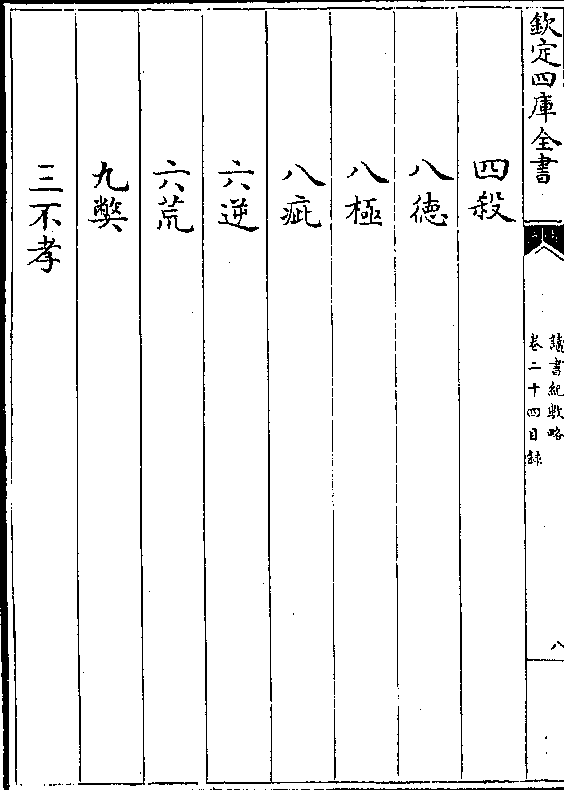 欽定四庫全書
讀書紀數略
卷二十四目録
八
四殺
八德
八極
八疵
六逆
六荒
九弊
三不孝